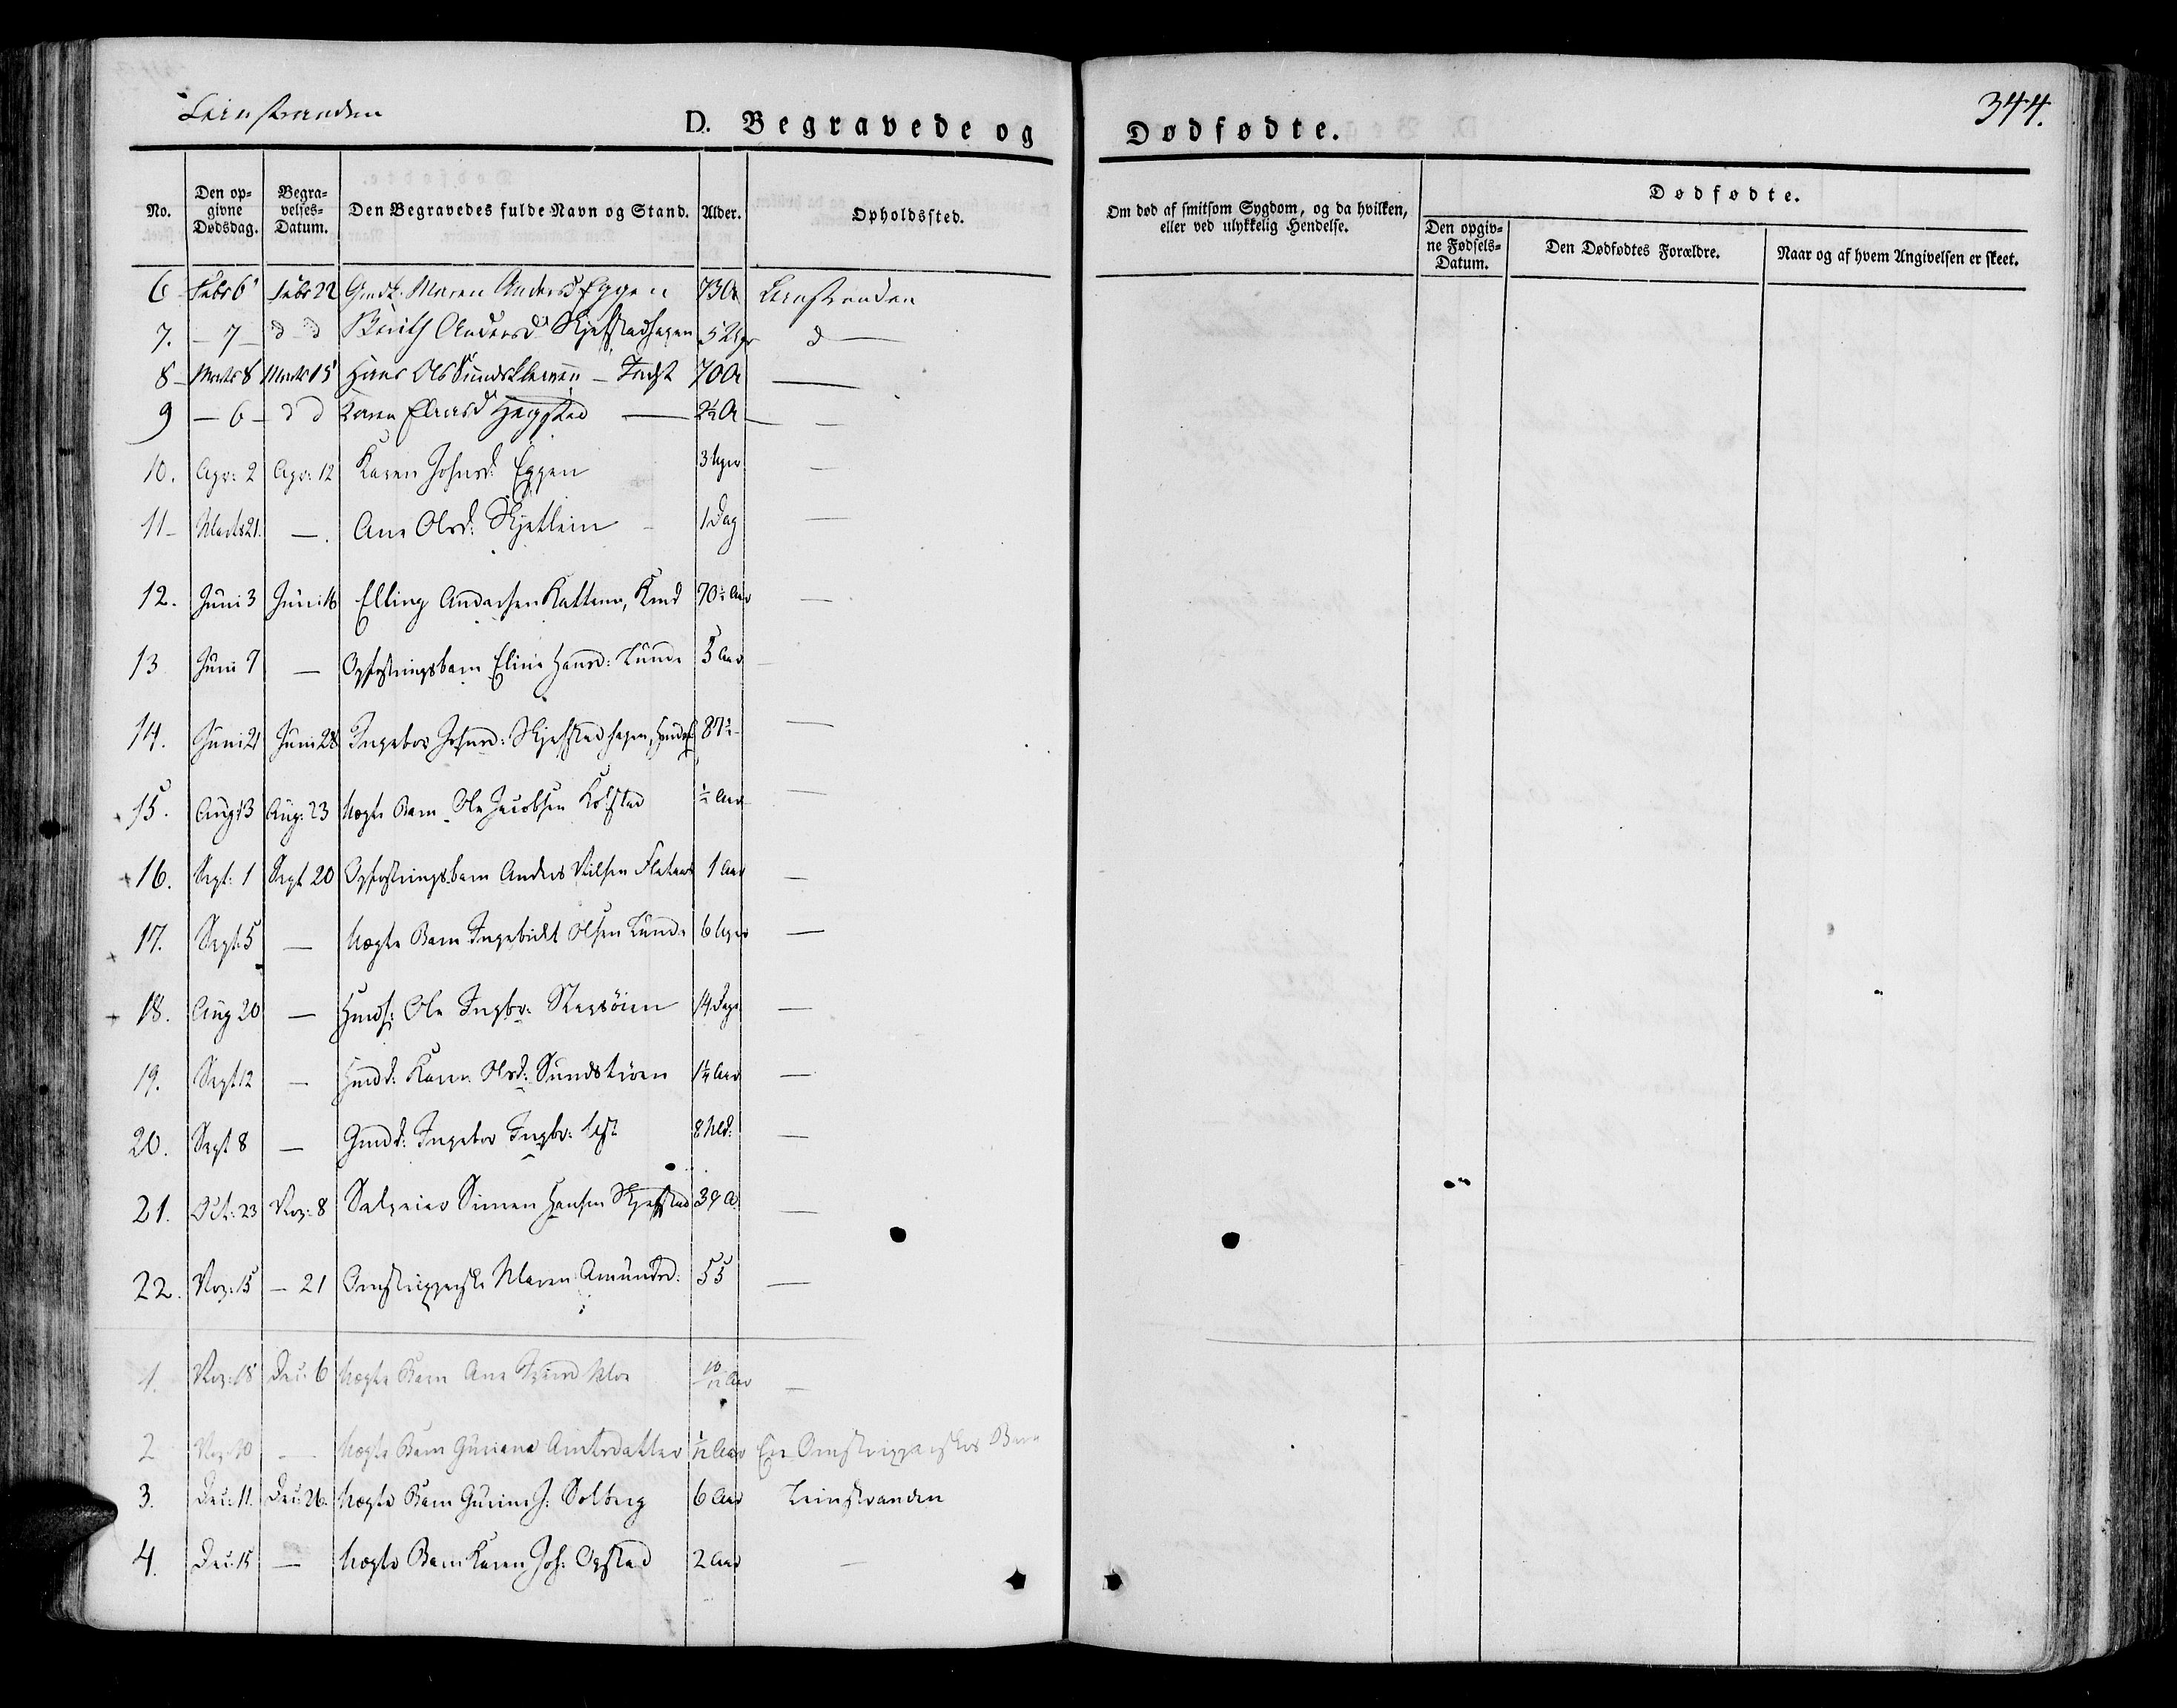 Leinstranden
D. Begravede og Dødfødte.
344.
No. Den opgivne Dødsdag. Begravelses-Datum. Den Begravedes fulde Navn og Stand. Alder. Opholdssted. Om død af smitsom Sygdom, og da hvilken, eller ved ulykkelig Hendelse. Dødfødte. Den opgivne Fødsels-Datum. Den Dødfødtes Forældre. Naar og af hvem Angivelsen er skeet.
6 Febr 6 Febr 22 Gmdk: Maren Andersd Eggen 73 A Leinstranden
7. – 7 – d d Berith Andersd Skjefstadhagen 5 Uger d —
8 – Marts 8 Marts 15 Hans Ols Sundsklevnen – 70 A —
9 – 6 – d d Karen Hagstad — 2½ A —
10. Apr: 2 Apr: 12 Karen Johnsd: Eggen 3 Uger —
11 – Marts 21. — Ane Olsd: Skjetlein 1 Dag —
12. Juni 3 Juni 16 Elling Andersen Kattem, Kmd 70½ Aar —
13 Juni 7 — Opfostringsbarn Eline Hansd: Lunde 5 Aar —
14. Juni 21 Juni 28 Ingebor Johnsd: Skjefstadhagen, 87½ —
15. Aug 13 Aug: 23 Uægte Barn Ole Jacobsen Kolstad ½ Aar —
16. Sept: 1 Sept 20 Opfostringsbarn Anders Nilsen 1 Aar —
17. Sept: 5 — Uægte Barn Ingebrigt Olsen Lunde 6 Uger —
18. Aug 20 — Hmds: Ole Ingbr: 14 Dage —
19. Sept 12 — Hmdd: Karen Olsd: Sundstrøen 1¼ Aar —
20. Sept 8 — Gmdd: Ingebor Ingbr: 8 —
21. Oct: 23 Nov: 8 Selveier Simen Hansen Skjefstad 39 A. —
22. Nov: 15 – 21 Omstripperske Maren Amundsd: 55 —
1. Nov: 18 Dec: 6 Uægte Barn Ane Moe 10/12 Aar —
2 Nov: 30 — Uægte Barn Guriana Arntsdatter 1/12 Aar En Omstripperskes Barn
3. Dec: 11. Dec: 26. Uægte Barn Gurine J: Solberg 6 Aar Leinstranden
4. Dec: 15 — Uægte Barn Karen Joh: Opstad 2 Aar —